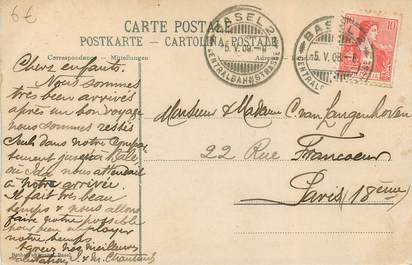 6€
CARTE POSTALE
POSTKARTE - CARTOLINA POSTALE
Correspondence - Mitteilungen
Adresse
BASEL 2
5.V.08.-11
CENTRALBAHNSTRASSE
BASEL 2
5.V.08.-11
CENTRALBAHNSTRASSE
10
Chers enfants.
Nous sommes
très bien arrivés
après un bon voyage
nous sommes restés
seuls dans notre compar
timent jusqu'à Bâle
où Jak nous attendait
à notre arrivée.
Il fait très beau
temps & nous allons
faire notre possible
pour bien employer
notre temps.
Agréez nos meilleures
salutations J. & M.
Monsieur & Madame C. van Langenhoven
22 Rue Francoeur
Paris 18ème